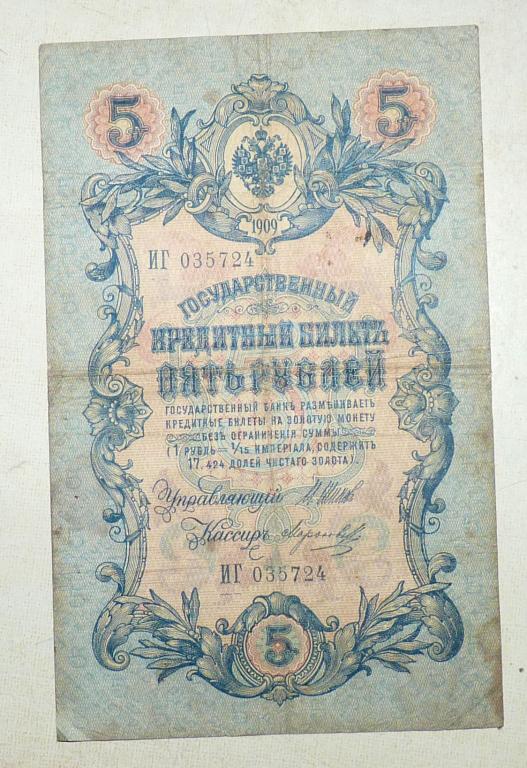 5 5
1909
ИГ 035724
ГОСУДАРСТВЕННЫЙ
КРЕДИТНЫЙ БИЛЕТЪ
ПЯТЬ РУБЛЕЙ
ГОСУДАРСТВЕННЫЙ БАНКЪ РАЗМѢНИВАЕТЪ
КРЕДИТНЫЕ БИЛЕТЫ НА ЗОЛОТУЮ МОНЕТУ
БЕЗЪ ОГРАНИЧЕНІЯ СУММЫ
(1 РУБЛЬ = 1/15 ИМПЕРІАЛА, СОДЕРЖИТЪ
17,424 ДОЛЕЙ ЧИСТАГО ЗОЛОТА).
Управляющій
Кассиръ
ИГ 035724
5